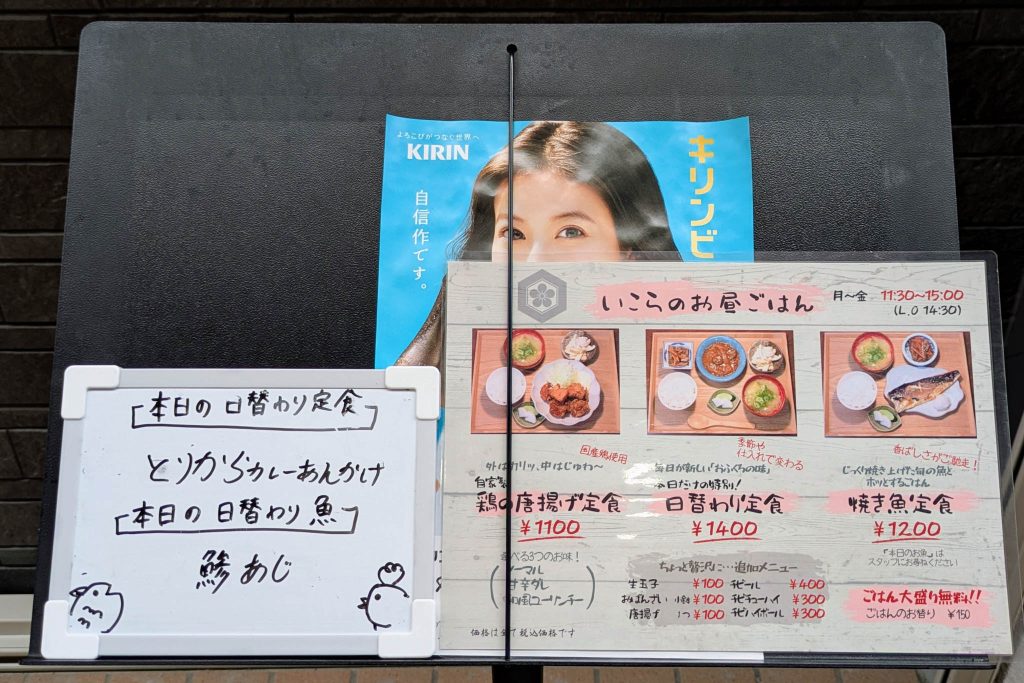 よろこびがつなぐ世界へ
KIRIN
キリンビ
自信作です。
「本日の 日替わり定食」
とりからカレーあんかけ
「本日の 日替わり 魚」
鯵 あじ
いこらのお昼ごはん
月〜金 11:30〜15:00
(L.O 14:30)
国産鶏使用
外はカリッ、中はじゅわ〜
鶏の唐揚げ定食
¥1100
選べる3つのお味!
ノーマル
甘辛ダレ
季節や
仕入れで変わる
毎日が新しい「おふくろの味」
本日だけの特別!
日替わり定食
¥1400
香ばしさがご馳走!
じっくり焼き上げた旬の魚と
ホッとするごはん
焼き魚定食
¥1200
「本日のお魚」は
スタッフにお尋ねください
ちょっと贅沢に…追加メニュー
生玉子 ¥100
おばんざい 小鉢 ¥100
唐揚げ 1つ ¥100
チビール ¥400
チビチューハイ ¥300
チビハイボール ¥300
ごはん大盛り無料!!
ごはんのお替り ¥150
価格は全て税込価格です